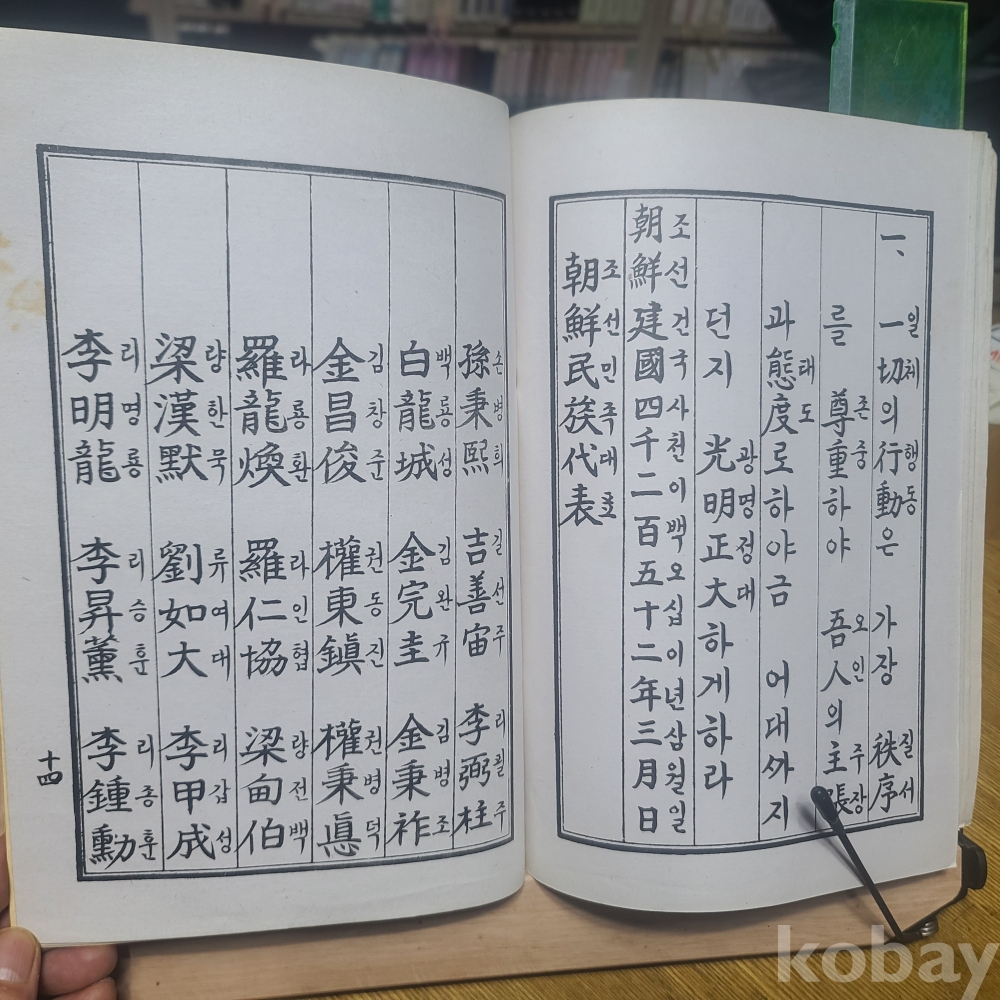 一、 一切의 行動은 가장 秩序
일체 행동 질서
를 尊重하야 吾人의 主張
존중 오인 주장
과 態度로 하야금 어대ᄭᅡ지
태도
던지 光明正大하게하라
광명정대
朝鮮建國四千二百五十二年三月日
조선건국사천이백오십이년삼월일
朝鮮民族代表
조선민족대표
孫秉熙 吉善宙 李弼柱
손병희 길선주 리필주
白龍城 金完圭 金秉祚
백룡성 김완규 김병조
金昌俊 權東鎭 權秉悳
김창준 권동진 권병덕
羅龍煥 羅仁協 梁甸伯
라룡환 라인협 량전백
梁漢默 劉如大 李甲成
량한묵 류여대 리갑성
李明龍 李昇薰 李鍾勳
리명룡 리승훈 리종훈
十四
kobay